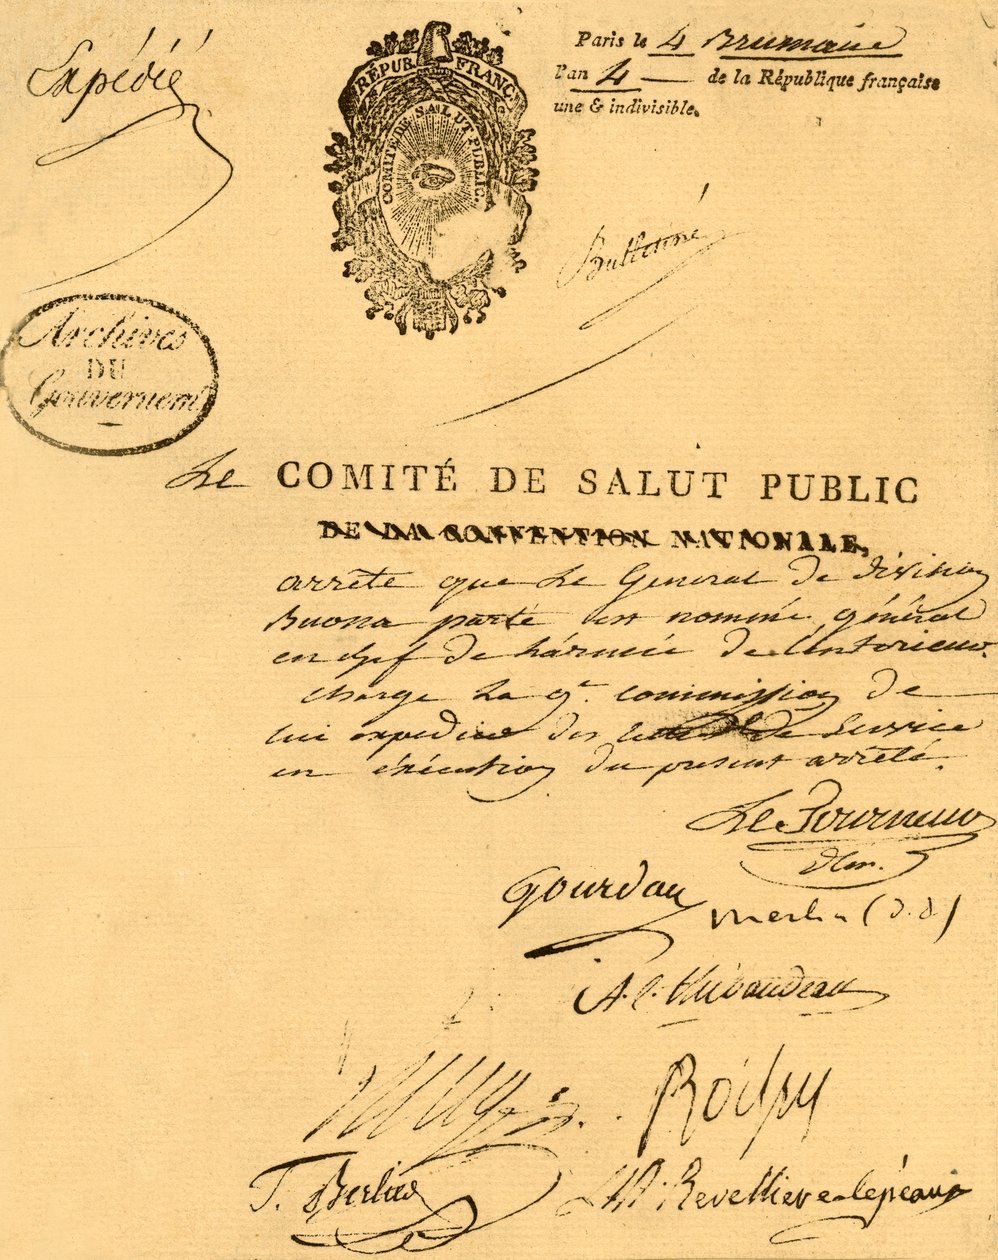 Expédié
RÉPUB. FRANÇ.
COMITÉ DE SALUT PUBLIC.
Paris le 4 Brumaire
l'an 4 — de la République française
une & indivisible.
Bulletiné
Archives
DU
Gouvernemt
Le COMITÉ DE SALUT PUBLIC
DE LA CONVENTION NATIONALE,
arrête que le Général de division
Buona parté est nommé général
en chef de l'armée de l'intérieur.
charge la 9e commission de
lui expedier des lettres de Service
en éxécution du present arrêté.
Le Tourneur
Gourdan
merlin (d. d)
A. C. thibaudeau
Boissy
T. Berlier
LM. Revelliere-lepeaux